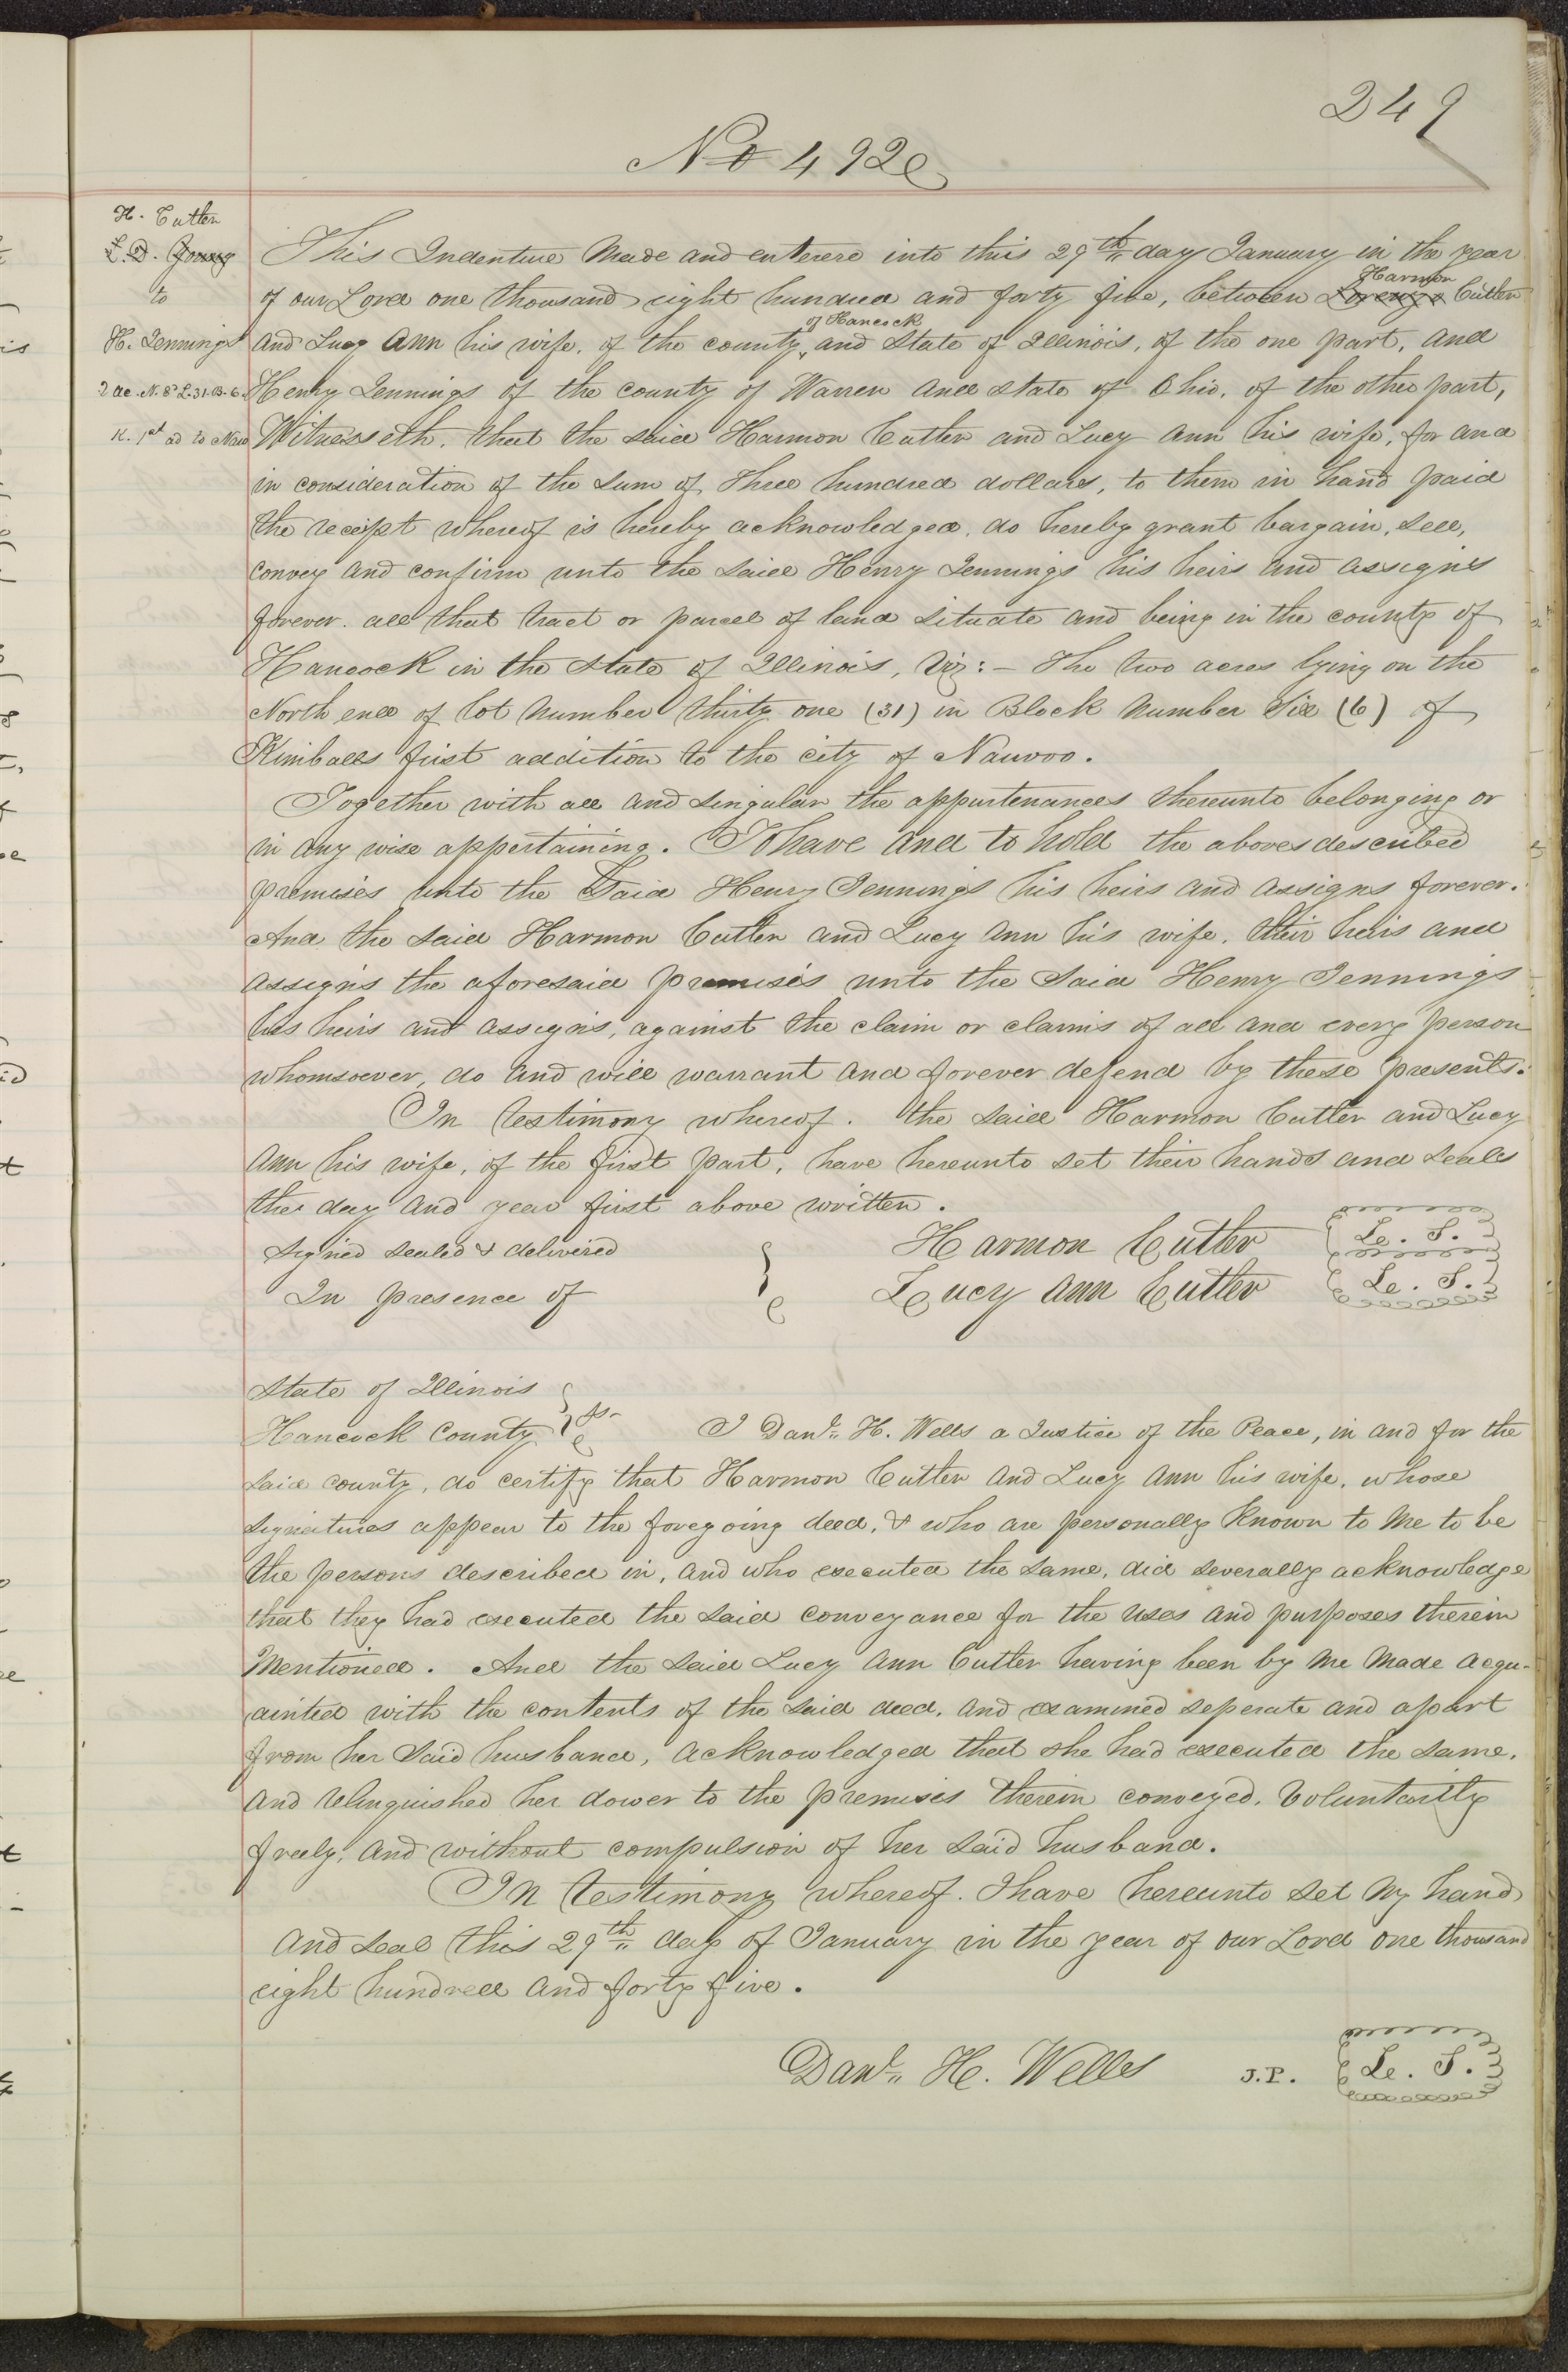 249
No 492
H. Cutler
L. D. Young
to
H. Jennings
2 ac. N. L. 31. B. 6.
K. 1st ad to Nau
This Indenture Made and entered into this 29th day January in the year
Harmon
of our Lord one thousand eight hundred and forty five, between Lorenzo Cutler
of Hancock
and Lucy Ann his wife, of the county, and State of Illinois, of the one part, and
Henry Jennings of the county of Warren and state of Ohio, of the other part,
Witnesseth, that the said Harmon Cutler and Lucy Ann his wife, for and
in consideration of the sum of Three hundred dollars, to them in hand paid
the receipt whereof is hereby acknowledged, do hereby grant bargain, sell,
convey and confirm unto the said Henry Jennings his heirs and assigns
forever. all that tract or parcel of land situate and being in the county of
Hancock in the State of Illinois, Viz:- The two acres lying on the
North end of lot number thirty one (31) in Block number Six (6) of
Kimballs first addition to the city of Nauvoo.
Together with all and singular the appurtenances thereunto belonging or
in any wise appertaining. To have and to hold the above described
premises unto the Said Henry Jennings his heirs and assigns forever.
And the said Harmon Cutler and Lucy Ann his wife, their heirs and
assigns the aforesaid premises unto the Said Henry Jennings
his heirs and assigns, against the claim or claims of all and every person
whomsoever, do and will warrant and forever defend by these presents.
In testimony whereof. the said Harmon Cutler and Lucy
Ann his wife, of the first part, have hereunto set their hands and seals
the day and year first above written.
Signed sealed & delivered
In presence of
Harmon Cutler L. S.
Lucy Ann Cutler L. S.
State of Illinois
Hancock County ss I Danl. H. Wells a Justice of the Peace, in and for the
said county, do certify that Harmon Cutler and Lucy Ann his wife, whose
signatures appear to the foregoing deed, & who are personally known to me to be
the persons described in, and who executed the same, did severally acknowledge
that they had executed the said conveyance for the uses and purposes therein
Mentioned. And the said Lucy Ann Cutler having been by me made acqu-
ainted with the contents of the said deed, and examined seperate and apart
from her Said husband, acknowledged that she had executed the same,
and relinquished her dower to the premises therein conveyed, voluntarily
freely, and without compulsion of her said husband.
In testimony whereof. I have hereunto set my hand
and seal this 29th day of January in the year of our Lord one thousand
eight hundred and forty five.
Danl. H. Wells J.P. L. S.